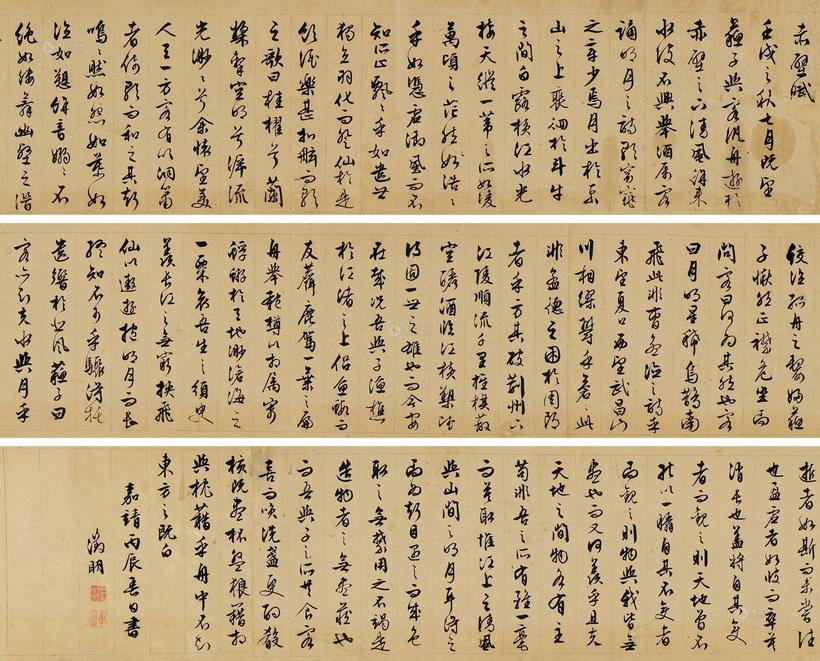 赤壁賦
壬戌之秋七月既望
蘇子與客汎舟遊於
赤壁之下清風徐來
水波不興舉酒屬客
誦明月之詩歌窈窕
之章少焉月出於東
山之上裵徊於斗牛
之間白露橫江水光
接天縱一葦之所如淩
萬頃之茫然浩浩
乎如憑虛御風而不
知所止飄飄乎如遺世
獨立羽化而登仙於是
飲酒樂甚扣舷而歌
之歌曰桂櫂兮蘭
槳擊空明兮泝流
光渺渺兮余懷望美
人兮天一方客有吹洞簫
者倚歌而和之其聲
嗚嗚然如怨如慕如
泣如愬餘音嫋嫋不
絕如縷舞幽壑之潛
蛟泣孤舟之嫠婦蘇
子愀然正襟危坐而
問客曰何為其然也客
曰月明星稀烏鵲南
飛此非曹孟德之詩乎
東望夏口西望武昌山
川相繆鬱乎蒼蒼此
非孟德之困於周郎
者乎方其破荊州下
江陵順流千里旌旗蔽
空釃酒臨江橫槊賦
詩固一世之雄也而今安
在哉況吾與子漁樵
於江渚之上侶魚蝦而
友麋鹿駕一葉之扁
舟舉匏樽以相屬寄
蜉蝣於天地渺滄海之
一粟哀吾生之須臾
羨長江之無窮挾飛
仙以遨遊抱明月而長
終知不可乎驟得托
遺響於悲風蘇子曰
客亦知夫水與月乎
逝者如斯而未嘗往
也盈虛者如彼而卒莫
消長也蓋將自其變
者而觀之則天地曾不
能以一瞬自其不變者
而觀之則物與我皆無
盡也而又何羨乎且夫
天地之間物各有主
苟非吾之所有雖一毫
而莫取惟江上之清風
與山間之明月耳得之
而為聲目遇之而成色
取之無禁用之不竭是
造物者之無盡藏也
而吾與子之所共食客
喜而笑洗盞更酌殽
核既盡杯盤狼籍相
與枕藉乎舟中不知
東方之既白
嘉靖丙辰春日書
徵明